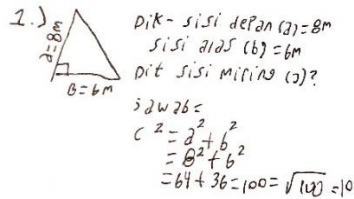 1.)
a=8m
B=6m
Dik- sisi depan (a)=8m
sisi alas (b)=6m
Dit sisi miring (c)?
Jawab=
C²=a²+b²
=8²+6²
=64+36=100=√100=10